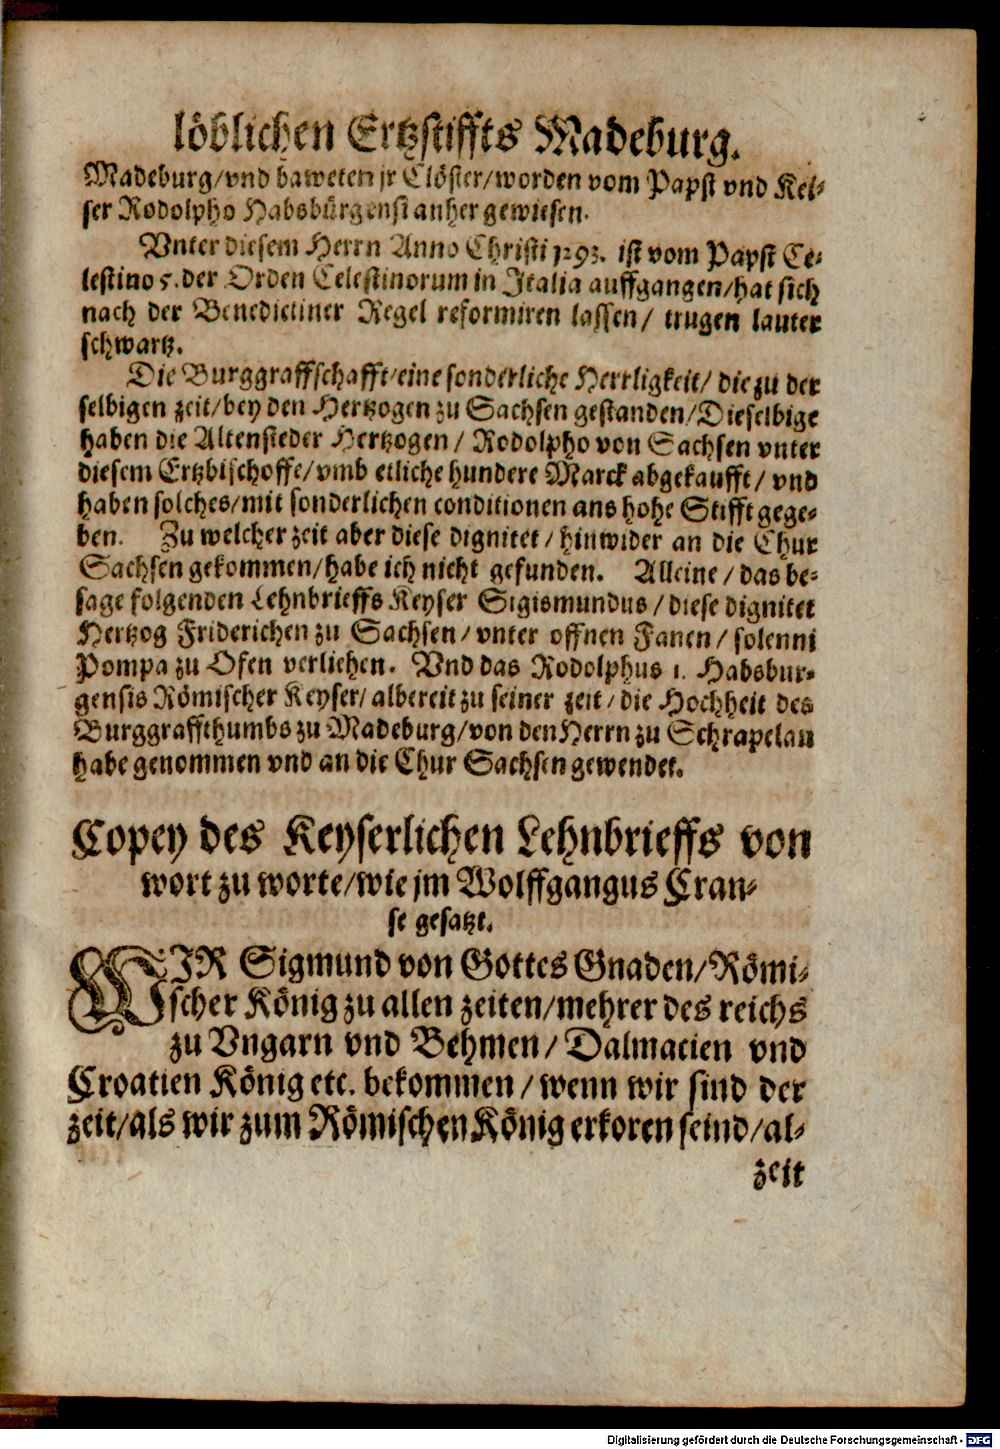 löblichen Ertzstiffts Madeburg.
Madeburg/vnd baweten jr Clöster/worden vom Papst vnd Kei-
ser Rodolpho Habsbürgensi anher gewiesen.
Vnter diesem Herrn Anno Christi 1293. ist vom Papst Ce-
lestino 5. der Orden Celestinorum in Italia auffgangen/hat sich
nach der Benedictiner Regel reformiren lassen/ trugen lauter
schwartz.
Die Burggraffschafft/eine sonderliche Herrligkeit/ die zu der
selbigen zeit/bey den Hertzogen zu Sachsen gestanden/Dieselbige
haben die Altensteder Hertzogen/ Rodolpho von Sachsen vnter
diesem Ertzbischoffe/vmb etliche hundere Marck abgekaufft/ vnd
haben solches/mit sonderlichen conditionen ans hohe Stifft gege-
ben. Zu welcher zeit aber diese dignitet/ hinwider an die Chur
Sachsen gekommen/habe ich nicht gefunden. Alleine/das be-
sage folgenden Lehnbrieffs Keyser Sigismundus/diese dignitet
Hertzog Friderichen zu Sachsen/vnter offnen Fanen/solenni
Pompa zu Ofen verliehen. Vnd das Rodolphus 1. Habsbur-
gensis Römischer Keyser/albereit zu seiner zeit/die Hochheit des
Burggraffthumbs zu Madeburg/von den Herrn zu Schrapelau
habe genommen vnd an die Chur Sachsen gewendet.
Copey des Keyserlichen Lehnbrieffs von
wort zu worte/wie jm Wolffgangus Cran-
se gesatzt.
WIR Sigmund von Gottes Gnaden/Römi-
scher König zu allen zeiten/mehrer des reichs
zu Vngarn vnd Behmen/Dalmacien vnd
Croatien König etc. bekommen/wenn wir sind der
zeit/als wir zum Römischen König erkoren seind/al-
zeit
Digitalisierung gefördert durch die Deutsche Forschungsgemeinschaft - DFG